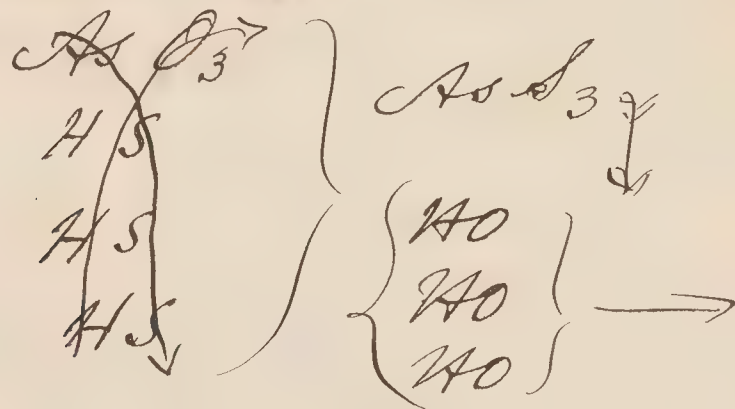 As O3
H S
H S
H S
As S3
HO
HO
HO